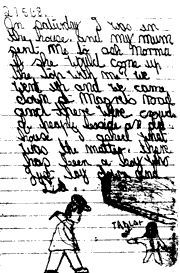 21.5.68.
On saturday I was in
the house and my mum
sent me to ask Norma
if she would come up
the top with me we
went up and we came
down at Magrets Road
and there were crowds
of people beside an old
house I asked what
was the matter. there
has been a boy who
Just lay down and
Died.